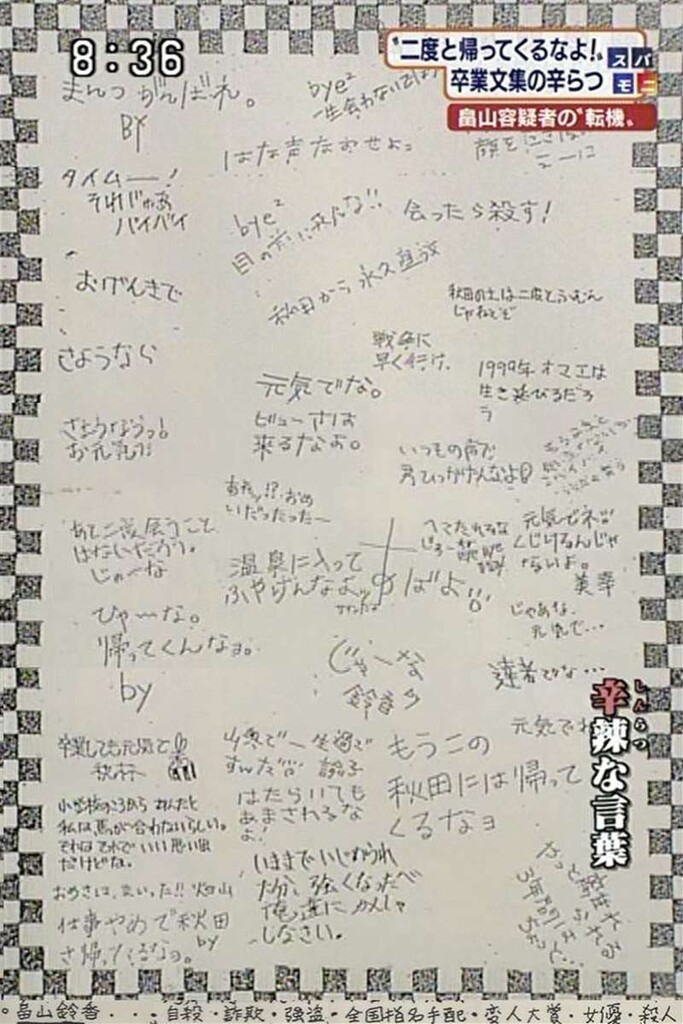 8:36
“二度と帰ってくるなよ!”
卒業文集の辛らつ
スパモニ
畠山容疑者の“転機”
まんつ がんばれ。
BY
bye²
一生会わないでしょう
はな声なおせよ。
タイムー!
それじゃあ
バイバイ
bye²
目の前に来るな!!
会ったら殺す!
おげんきで
秋田から永久追放
秋田の土は二度とふむん
じゃねえぞ
さようなら
戦争に
早く行け.
元気でな。
1999年オマエは
生き延びるだろ
う
さようならっ!
お元気で!
ビューさは
来るなよ。
いつもの声で
男ひっかけんなよ
あれッ!?おめ
いだったったー
あと二度会うこと
はないだろう。
じゃーな
温泉に入って
ふやけんなよッ
のばよ
元気だせ
くじけるんじゃ
ないよ。
美幸
ひゃーな。
帰ってくんなョ。
by
じゃあな
元気で…
じゃーな
鈴香
達者でな…
卒業しても元気で
元気でね
山奥で一生過ご
すんだ
はたらいても
あまされるな
よ!
もうこの
秋田には帰って
くるなョ
小学校のころから あんたと
私は馬が合わないらしい。
それはそれでいい思い出
だけどな。
おめさは、まいった!! 畑山
仕事やめて秋田
さ帰ってくるなよ。
by
いままでいじめられ
た分、強くなったべ
俺達にカンシャ
しなさい。
辛辣な言葉
しんらつ
。畠山鈴香・・・自殺・詐欺・強盗・全国指名手配・変人大賞・女優・殺人